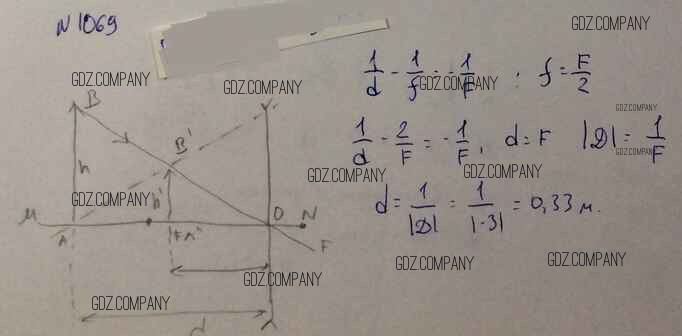 N 1069
GDZ.COMPANY
GDZ.COMPANY GDZ.COMPANY
1/d - 1/f = -1/F ; f = F/2
GDZ.COMPANY
B
GDZ.COMPANY
B'
1/d - 2/F = -1/F, d = F |D| = 1/F
GDZ.COMPANY
GDZ.COMPANY
h
GDZ.COMPANY
h'
GDZ.COMPANY
d = 1/|D| = 1/|-3| = 0,33 м.
GDZ.COMPANY
M A F A' O N F
GDZ.COMPANY
GDZ.COMPANY GDZ.COMPANY
GDZ.COMPANY
d